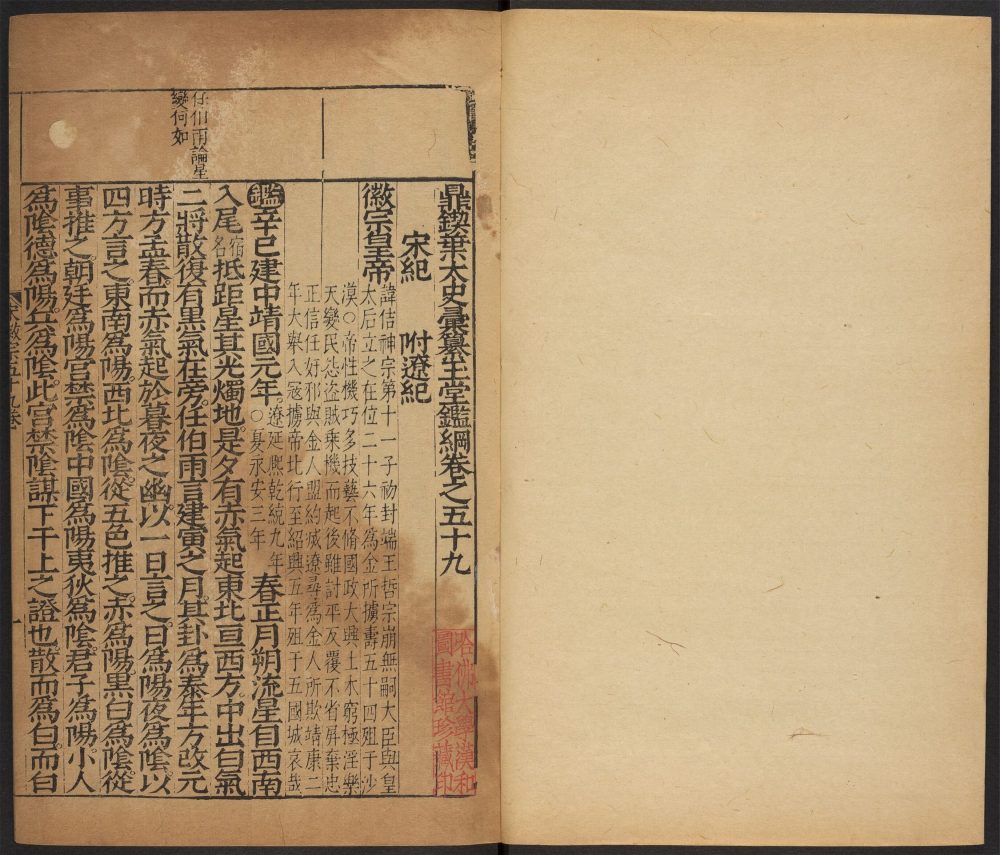 鼎鍥葉太史彙纂玉堂鑑綱卷之五十九
宋紀　附遼紀
徽宗皇帝
諱佶神宗第十一子初封端王哲宗崩無嗣大臣與皇
太后立之在位二十六年為金所擄壽五十四殂于沙
漠○帝性機巧多技藝不脩國政大興土木窮極淫樂
天變民怨盜賊乘機而起後雖討平反覆不省屏棄忠
正信任好邪與金人盟約滅遼尋為金人所欺靖康二
年大舉入冦擄帝北行至紹興五年殂于五國城哀哉
鑑辛巳建中靖國元年
遼延熈乾統九年
○夏永安三年
春正月朔流星自西南
入尾宿名抵距星其光燭地是夕有赤氣起東北亘西方中出白氣
二將散復有黑氣在旁任伯雨言建寅之月其卦為泰年方改元
時方孟春而赤氣起於暮夜之幽以一日言之日為陽夜為陰以
四方言之東南為陽西北為陰從五色推之赤為陽黑白為陰從
事推之朝廷為陽宮禁為陰中國為陽夷狄為陰君子為陽小人
為陰德為陽兵為陰此宮禁陰謀下干上之證也散而為白而白
任伯雨論星
變何如
哈佛大學漢和
圖書館珍藏印